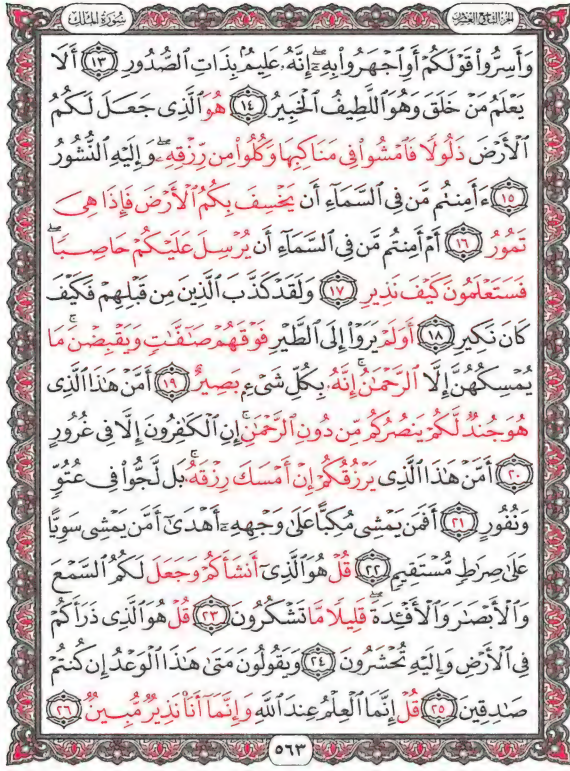 سُورَةُ المُلْكِ الجُزْءُ التَّاسِعُ وَالعِشْرُونَ
وَأَسِرُّوا۟ قَوْلَكُمْ أَوِ ٱجْهَرُوا۟ بِهِۦٓ ۖ إِنَّهُۥ عَلِيمٌۢ بِذَاتِ ٱلصُّدُورِ ١٣ أَلَا
يَعْلَمُ مَنْ خَلَقَ وَهُوَ ٱللَّطِيفُ ٱلْخَبِيرُ ١٤ هُوَ ٱلَّذِى جَعَلَ لَكُمُ
ٱلْأَرْضَ ذَلُولًا فَٱمْشُوا۟ فِى مَنَاكِبِهَا وَكُلُوا۟ مِن رِّزْقِهِۦ ۖ وَإِلَيْهِ ٱلنُّشُورُ
١٥ ءَأَمِنتُم مَّن فِى ٱلسَّمَآءِ أَن يَخْسِفَ بِكُمُ ٱلْأَرْضَ فَإِذَا هِىَ
تَمُورُ ١٦ أَمْ أَمِنتُم مَّن فِى ٱلسَّمَآءِ أَن يُرْسِلَ عَلَيْكُمْ حَاصِبًا ۖ
فَسَتَعْلَمُونَ كَيْفَ نَذِيرِ ١٧ وَلَقَدْ كَذَّبَ ٱلَّذِينَ مِن قَبْلِهِمْ فَكَيْفَ
كَانَ نَكِيرِ ١٨ أَوَلَمْ يَرَوْا۟ إِلَى ٱلطَّيْرِ فَوْقَهُمْ صَٰٓفَّٰتٍ وَيَقْبِضْنَ ۚ مَا
يُمْسِكُهُنَّ إِلَّا ٱلرَّحْمَٰنُ ۚ إِنَّهُۥ بِكُلِّ شَىْءٍۭ بَصِيرٌ ١٩ أَمَّنْ هَٰذَا ٱلَّذِى
هُوَ جُندٌ لَّكُمْ يَنصُرُكُم مِّن دُونِ ٱلرَّحْمَٰنِ ۚ إِنِ ٱلْكَٰفِرُونَ إِلَّا فِى غُرُورٍ
٢٠ أَمَّنْ هَٰذَا ٱلَّذِى يَرْزُقُكُمْ إِنْ أَمْسَكَ رِزْقَهُۥ ۚ بَل لَّجُّوا۟ فِى عُتُوٍّ
وَنُفُورٍ ٢١ أَفَمَن يَمْشِى مُكِبًّا عَلَىٰ وَجْهِهِۦٓ أَهْدَىٰٓ أَمَّن يَمْشِى سَوِيًّا
عَلَىٰ صِرَٰطٍ مُّسْتَقِيمٍ ٢٢ قُلْ هُوَ ٱلَّذِىٓ أَنشَأَكُمْ وَجَعَلَ لَكُمُ ٱلسَّمْعَ
وَٱلْأَبْصَٰرَ وَٱلْأَفْـِٔدَةَ ۖ قَلِيلًا مَّا تَشْكُرُونَ ٢٣ قُلْ هُوَ ٱلَّذِى ذَرَأَكُمْ
فِى ٱلْأَرْضِ وَإِلَيْهِ تُحْشَرُونَ ٢٤ وَيَقُولُونَ مَتَىٰ هَٰذَا ٱلْوَعْدُ إِن كُنتُمْ
صَٰدِقِينَ ٢٥ قُلْ إِنَّمَا ٱلْعِلْمُ عِندَ ٱللَّهِ وَإِنَّمَآ أَنَا۠ نَذِيرٌ مُّبِينٌ ٢٦
٥٦٣